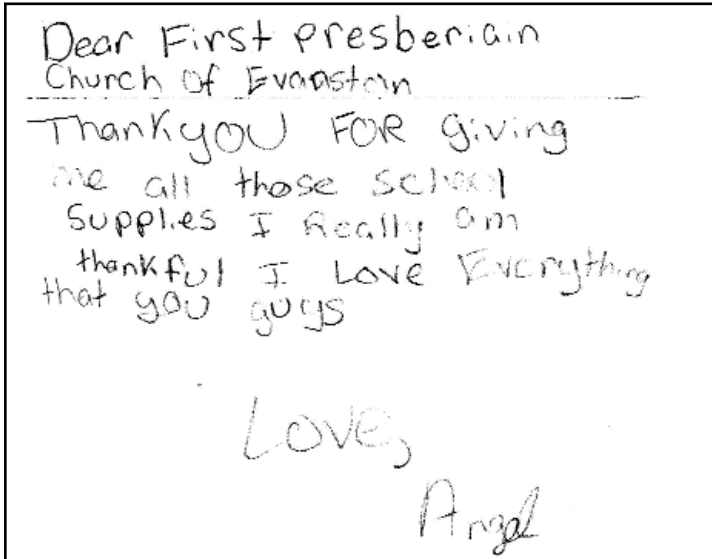 Dear First Presberiain
Church of Evanston
Thank yOU FOR giving
me all those school
Supplies I Really am
thankful I Love Everything
that you guys
Love,
Angel